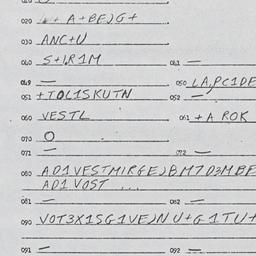 020 A+BE)G+
030 ANC+U
040 S+1.R1M 041 —
049 — 050 LA,PC1DE
051 +TOL1SKUTN 052 —
060 VESTL 061 +A ROK
070 O
071 — 072 —
080 AD1VESTMIRGE)BM7D3MBE
AD1 VOST ...
081 — 082 —
090 VOT3X1SG1VE)NU+G1TU+
091 — 092 —